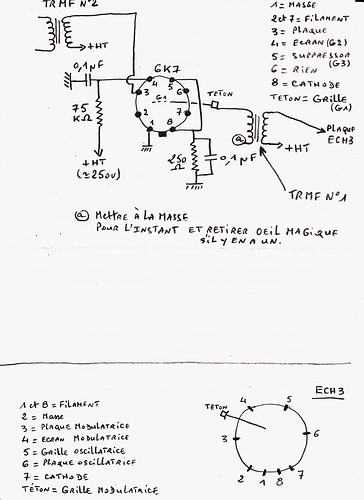 TRMF N°2
+HT
0,1µF
6K7
4
5
3
6
G1
TETON
2
7
1
8
75
KΩ
+HT
(≃250V)
250
Ω
0,1µF
a
+HT
PLAQUE
ECH3
TRMF N°1
1 = MASSE
2 et 7 = FILAMENT
3 = PLAQUE
4 = ECRAN (G2)
5 = SUPPRESSOR
(G3)
6 = RIEN
8 = CATHODE
TETON = GRILLE
(G1)
a METTRE À LA MASSE
POUR L'INSTANT ET RETIRER OEIL MAGIQUE
S'IL Y EN A UN.
1 et 8 = FILAMENT
2 = MASSE
3 = PLAQUE MODULATRICE
4 = ECRAN MODULATRICE
5 = GRILLE OSCILLATRICE
6 = PLAQUE OSCILLATRICE
7 = CATHODE
TETON = GRILLE MODULATRICE
ECH3
TETON
4
5
3
6
2
1
8
7